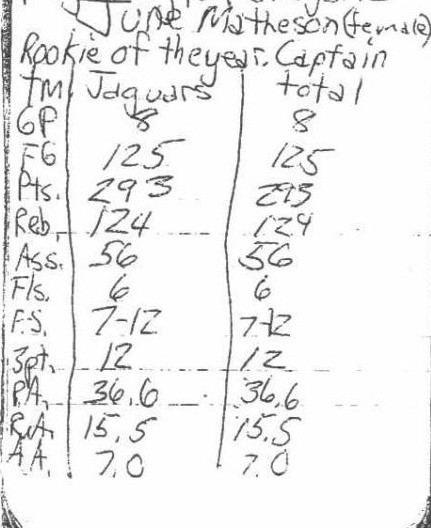 June Matheson (female)
Rookie of the year. Captain
TM. Jaguars total
GP 8 8
FG 125 125
Pts. 293 293
Reb. 124 124
Ass. 56 56
Fls. 6 6
F.S. 7-12 7-12
3pt. 12 12
P.A. 36.6 36.6
R.A. 15.5 15.5
A.A. 7.0 7.0